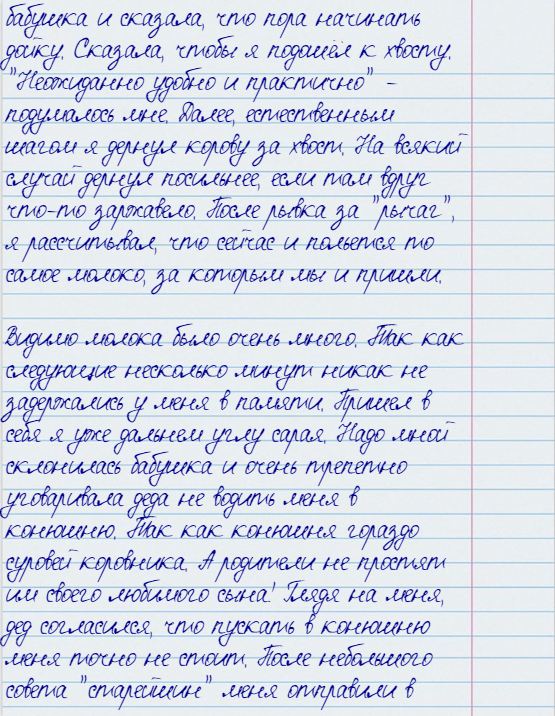 бабушка и сказала, что пора начинать
дойку. Сказала, чтобы я подошёл к хвосту.
"Неожиданно удобно и практично" -
подумалось мне. Далее, естественным
шагом я дернул корову за хвост. На всякий
случай дернул посильнее, если там вдруг
что-то заржавело. После рывка за "рычаг",
я рассчитывал, что сейчас и польется то
самое молоко, за которым мы и пришли.
Видимо молока было очень много. Так как
следующие несколько минут никак не
задержались у меня в памяти. Пришел в
себя я уже дальнем углу сарая. Надо мной
склонилась бабушка и очень трепетно
уговаривала деда не водить меня в
конюшню. Так как конюшня гораздо
суровей коровника. А родители не простят
им своего любимого сына! Глядя на меня,
дед согласился, что пускать в конюшню
меня точно не стоит. После небольшого
совета "старейшин" меня отправили в